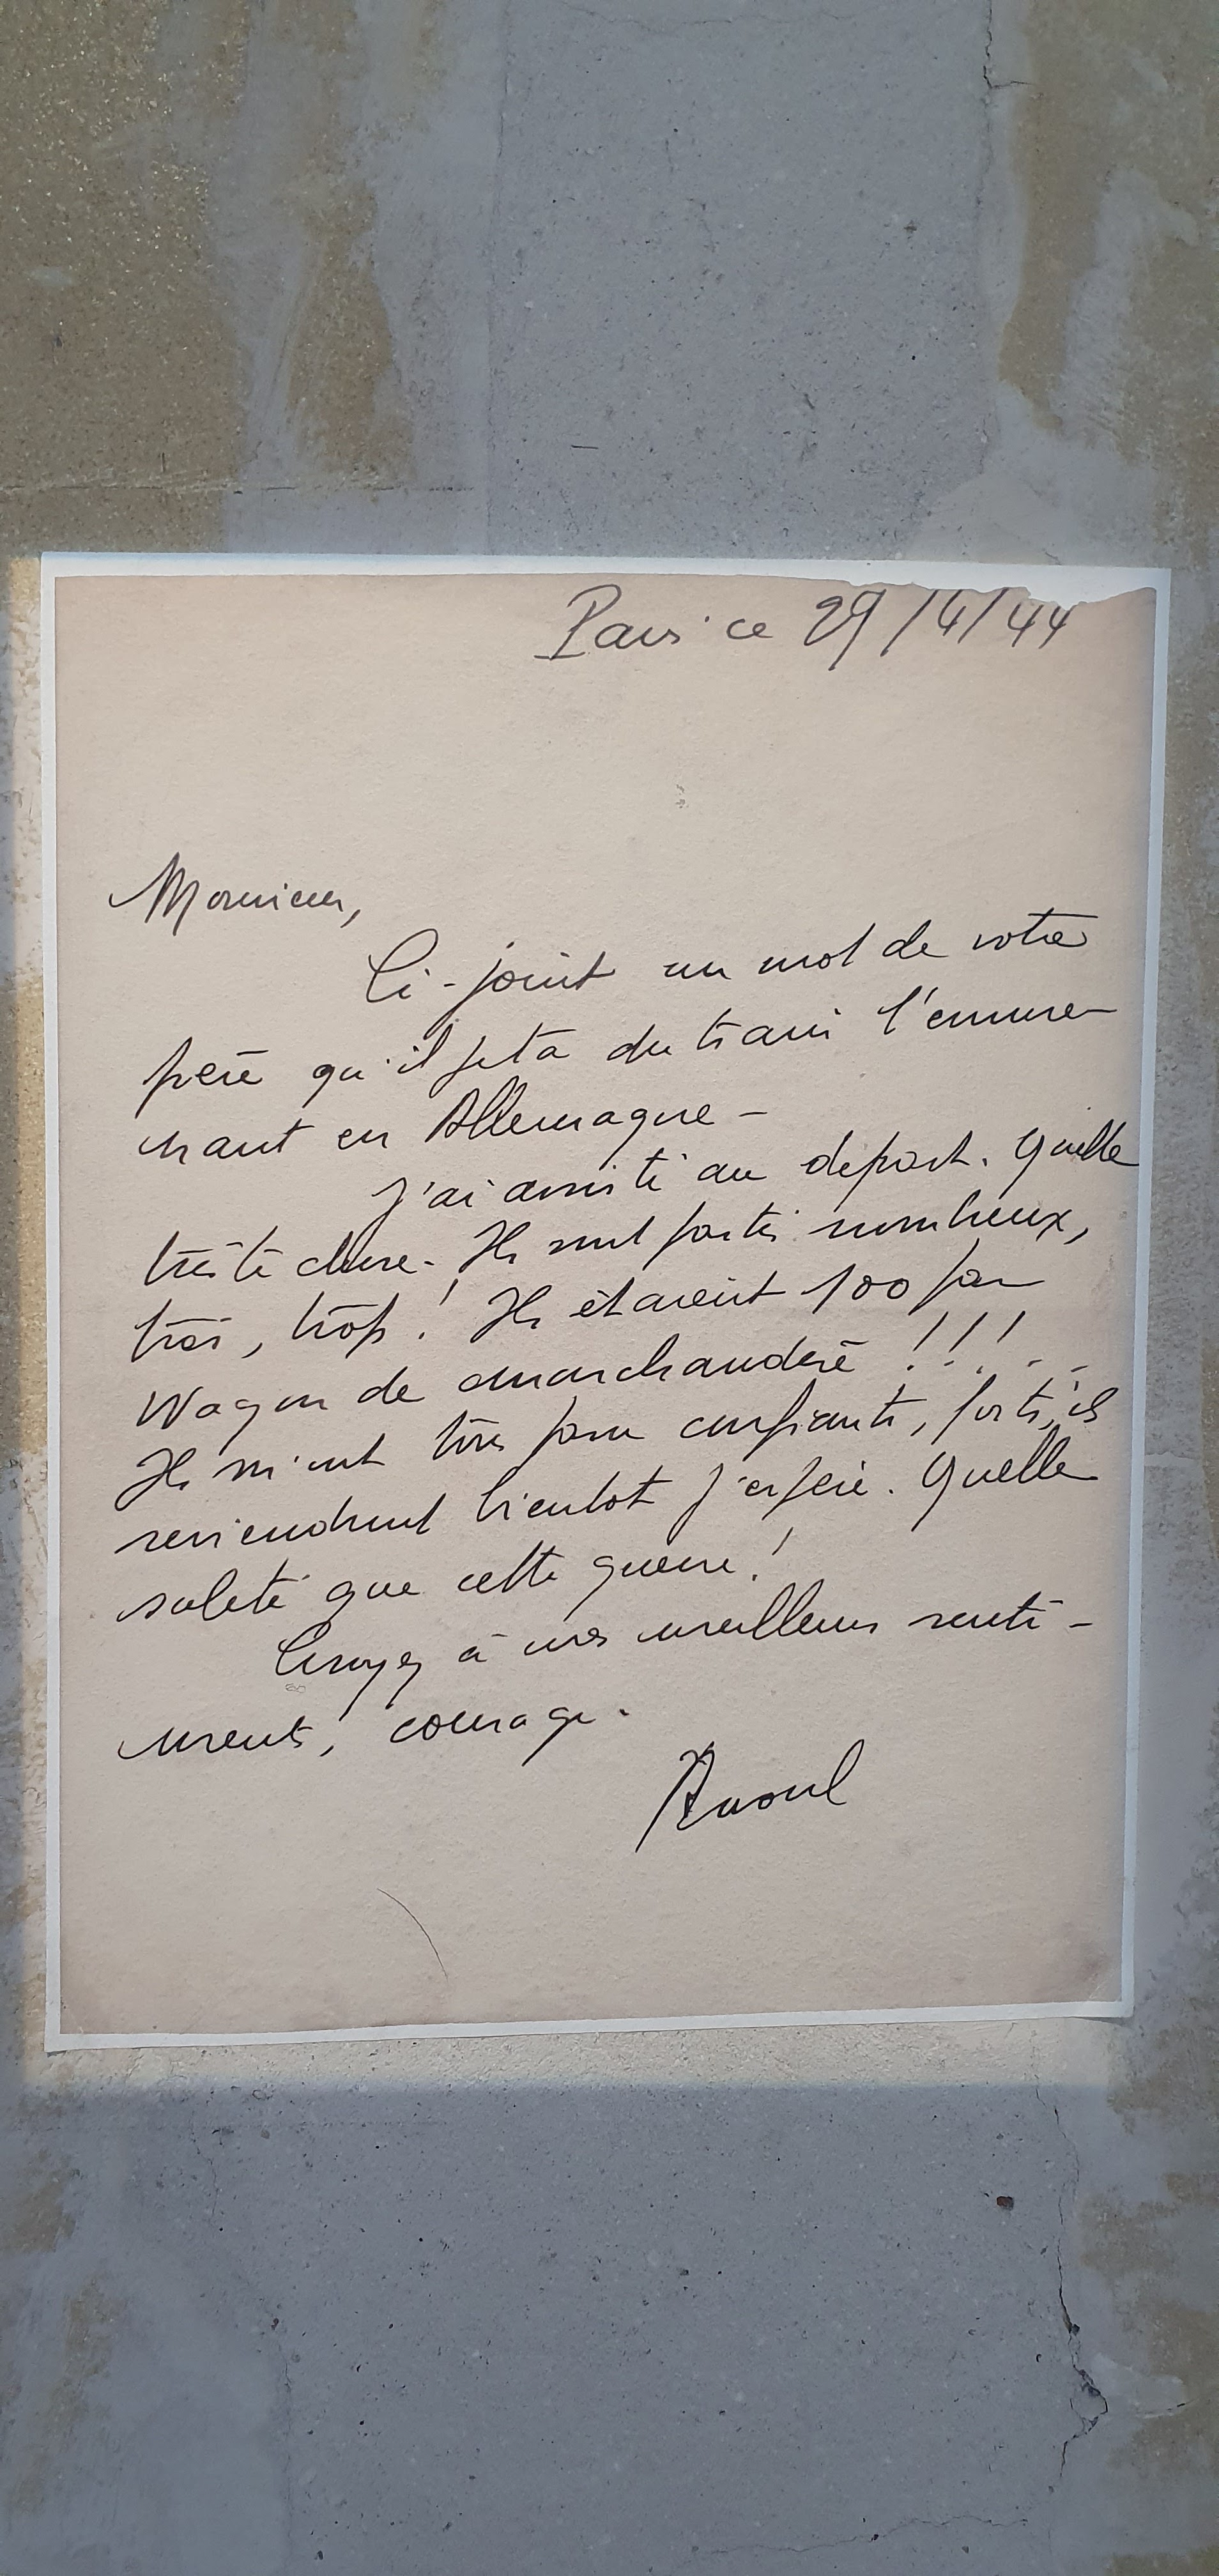 Paris ce 29/4/44
Monsieur,
Ci-joint un mot de votre
père qu'il jeta du train l'emme-
nant en Allemagne -
J'ai assisté au départ. Quelle
triste chose. Ils sont partis nombreux,
très, trop! Ils étaient 100 par
Wagon de marchandise !!!...
Ils m'ont tous paru confiants, forts, ils
reviendront bientôt j'espère. Quelle
saleté que cette guerre!
Croyez à mes meilleurs senti-
ments, courage.
Raoul